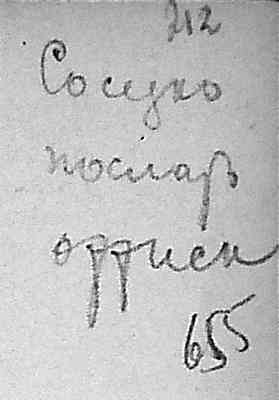 212
Сосуко
послар
оффиси
655